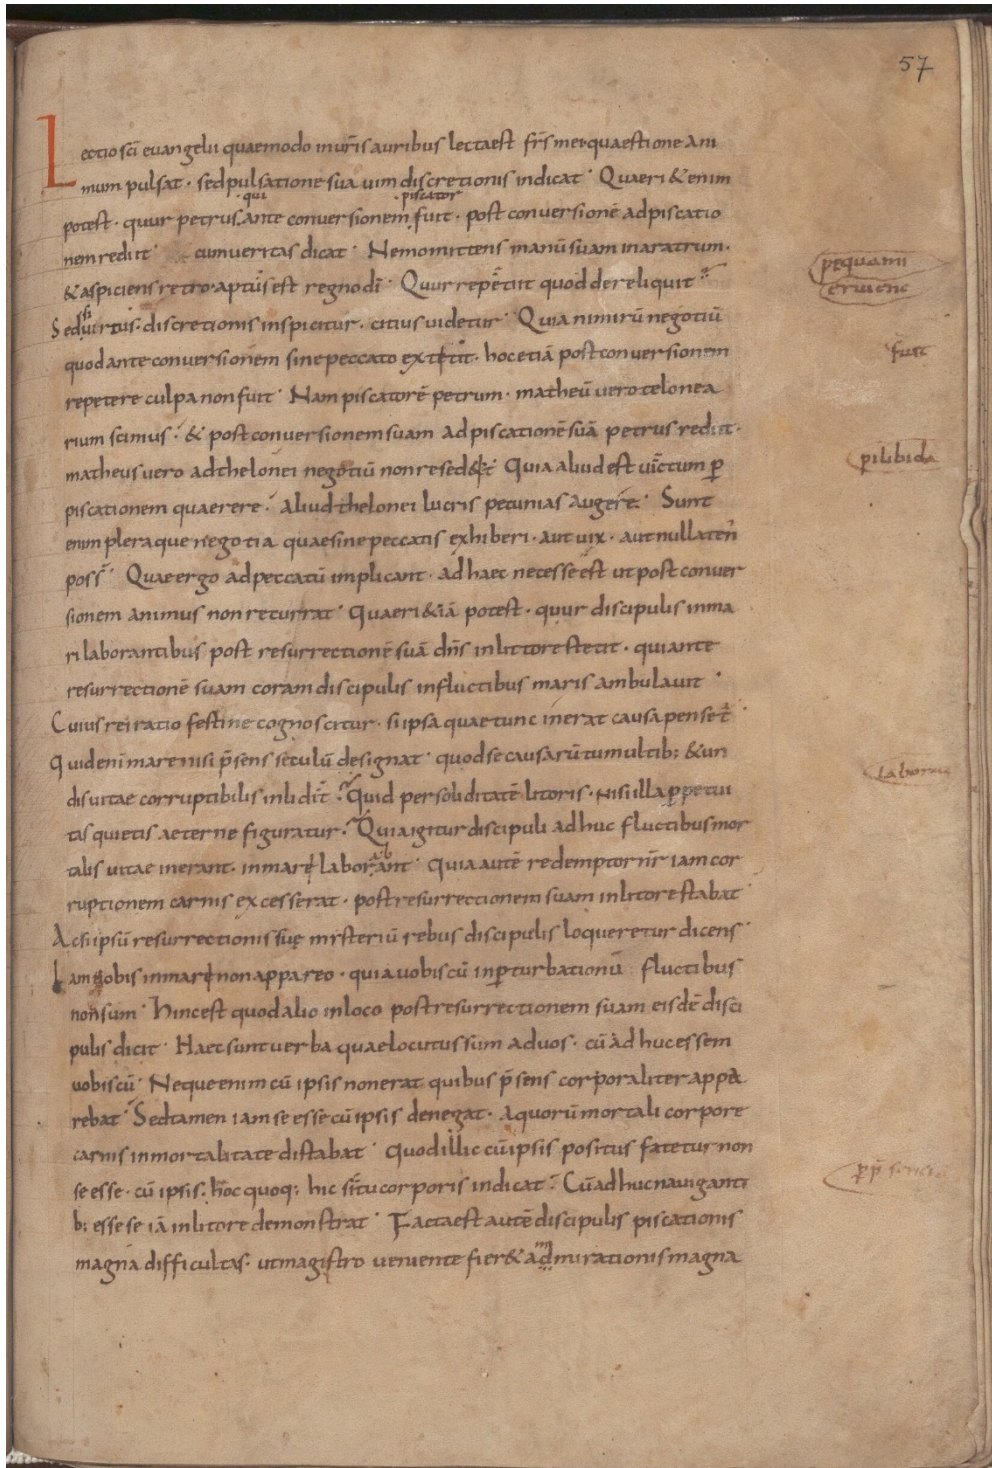 57
Lectio sci euangelii quae modo in urīs auribus lecta est fr̄s mei quaestione ani
mum pulsat · sed pulsatione sua uim discretionis indicat · Quaeri & enim
· qui · piscator
potest · quur petrus · ante conuersionem fuit · post conuersionē ad piscatio
nem rediit · cum ueritas dicat · Nemo mittens manū suam in aratrum ·
& aspiciens retro · aptus est regno dī · Quur repetiit quod dereliquit
Sed si uirtus · discretionis inspicitur · citius uidetur · Quia nimirū negotiū
quod ante conuersionem sine peccato extitit · hoc etiā post conuersionem
fuit
repetere culpa non fuit · Nam piscatorē petrum · matheū uero telonea
rium scimus · & post conuersionem suam ad piscationē suā petrus rediit ·
matheus uero ad thelonei negotiū non resedit · Quia aliud est uictum p̄
piscationem quaerere · aliud thelonei lucris pecunias augere · Sunt
enim pleraque negotia quae sine peccatis exhiberi · aut uix · aut nullaten̄
poss̄ · Quae ergo ad peccatū implicant · ad haec necesse est ut post conuer
sionem animus non recurrat · Quaeri & iā potest · quur discipulis in ma
ri laborantibus post resurrectionē suā dn̄s in littore stetit · qui ante
resurrectionē suam coram discipulis in fluctibus maris ambulauit ·
Cuius rei ratio festine cognoscitur · si ipsa quae tunc inerat causa penset̄
Quid enī mare nisi p̄sens seculū designat · quod se causarū tumultib; & un
dis uitae corruptibilis inlidit̄ · Quid per soliditatē litoris · nisi illa perpetui
tas quietis aeterne figuratur · Quia igitur discipuli adhuc fluctibus mor
talis uitae inerant · in mare laborabant · Quia autē redemptor nr̄ iam cor
ruptionem carnis excesserat · post resurrectionem suam in litore stabat
Ac si ipsū resurrectionis suę mysteriū rebus discipulis loqueretur dicens
Iam uobis in mare non appareo · quia uobiscū in perturbationū fluctibus
non sum · Hinc est quod alio in loco post resurrectionem suam eisdē disci
pulis dicit · Haec sunt uerba quae locutus sum ad uos · cū adhuc essem
uobiscū · Neque enim cū ipsis non erat quibus p̄sens corporaliter appa
rebat · Sed tamen iam se esse cū ipsis denegat · a quorū mortali corpore
carnis inmortalitate distabat · Quod illic cū ipsis positus fatetur non
se esse · cū ipsis · hoc quoq; hic sitū corporis indicat · Cū adhuc nauiganti
b; esse se iā in litore demonstrat · Facta est autē discipulis piscationis
magna difficultas · ut magistro ueniente fier& admirationis magna